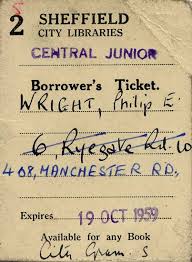 2 SHEFFIELD
CITY LIBRARIES
CENTRAL JUNIOR
Borrower's Ticket.
WRIGHT, Philip E.
6, Ryegate Rd. 10
408, MANCHESTER RD,
Expires 19 OCT 1959
Available for any Book
City Gram. S